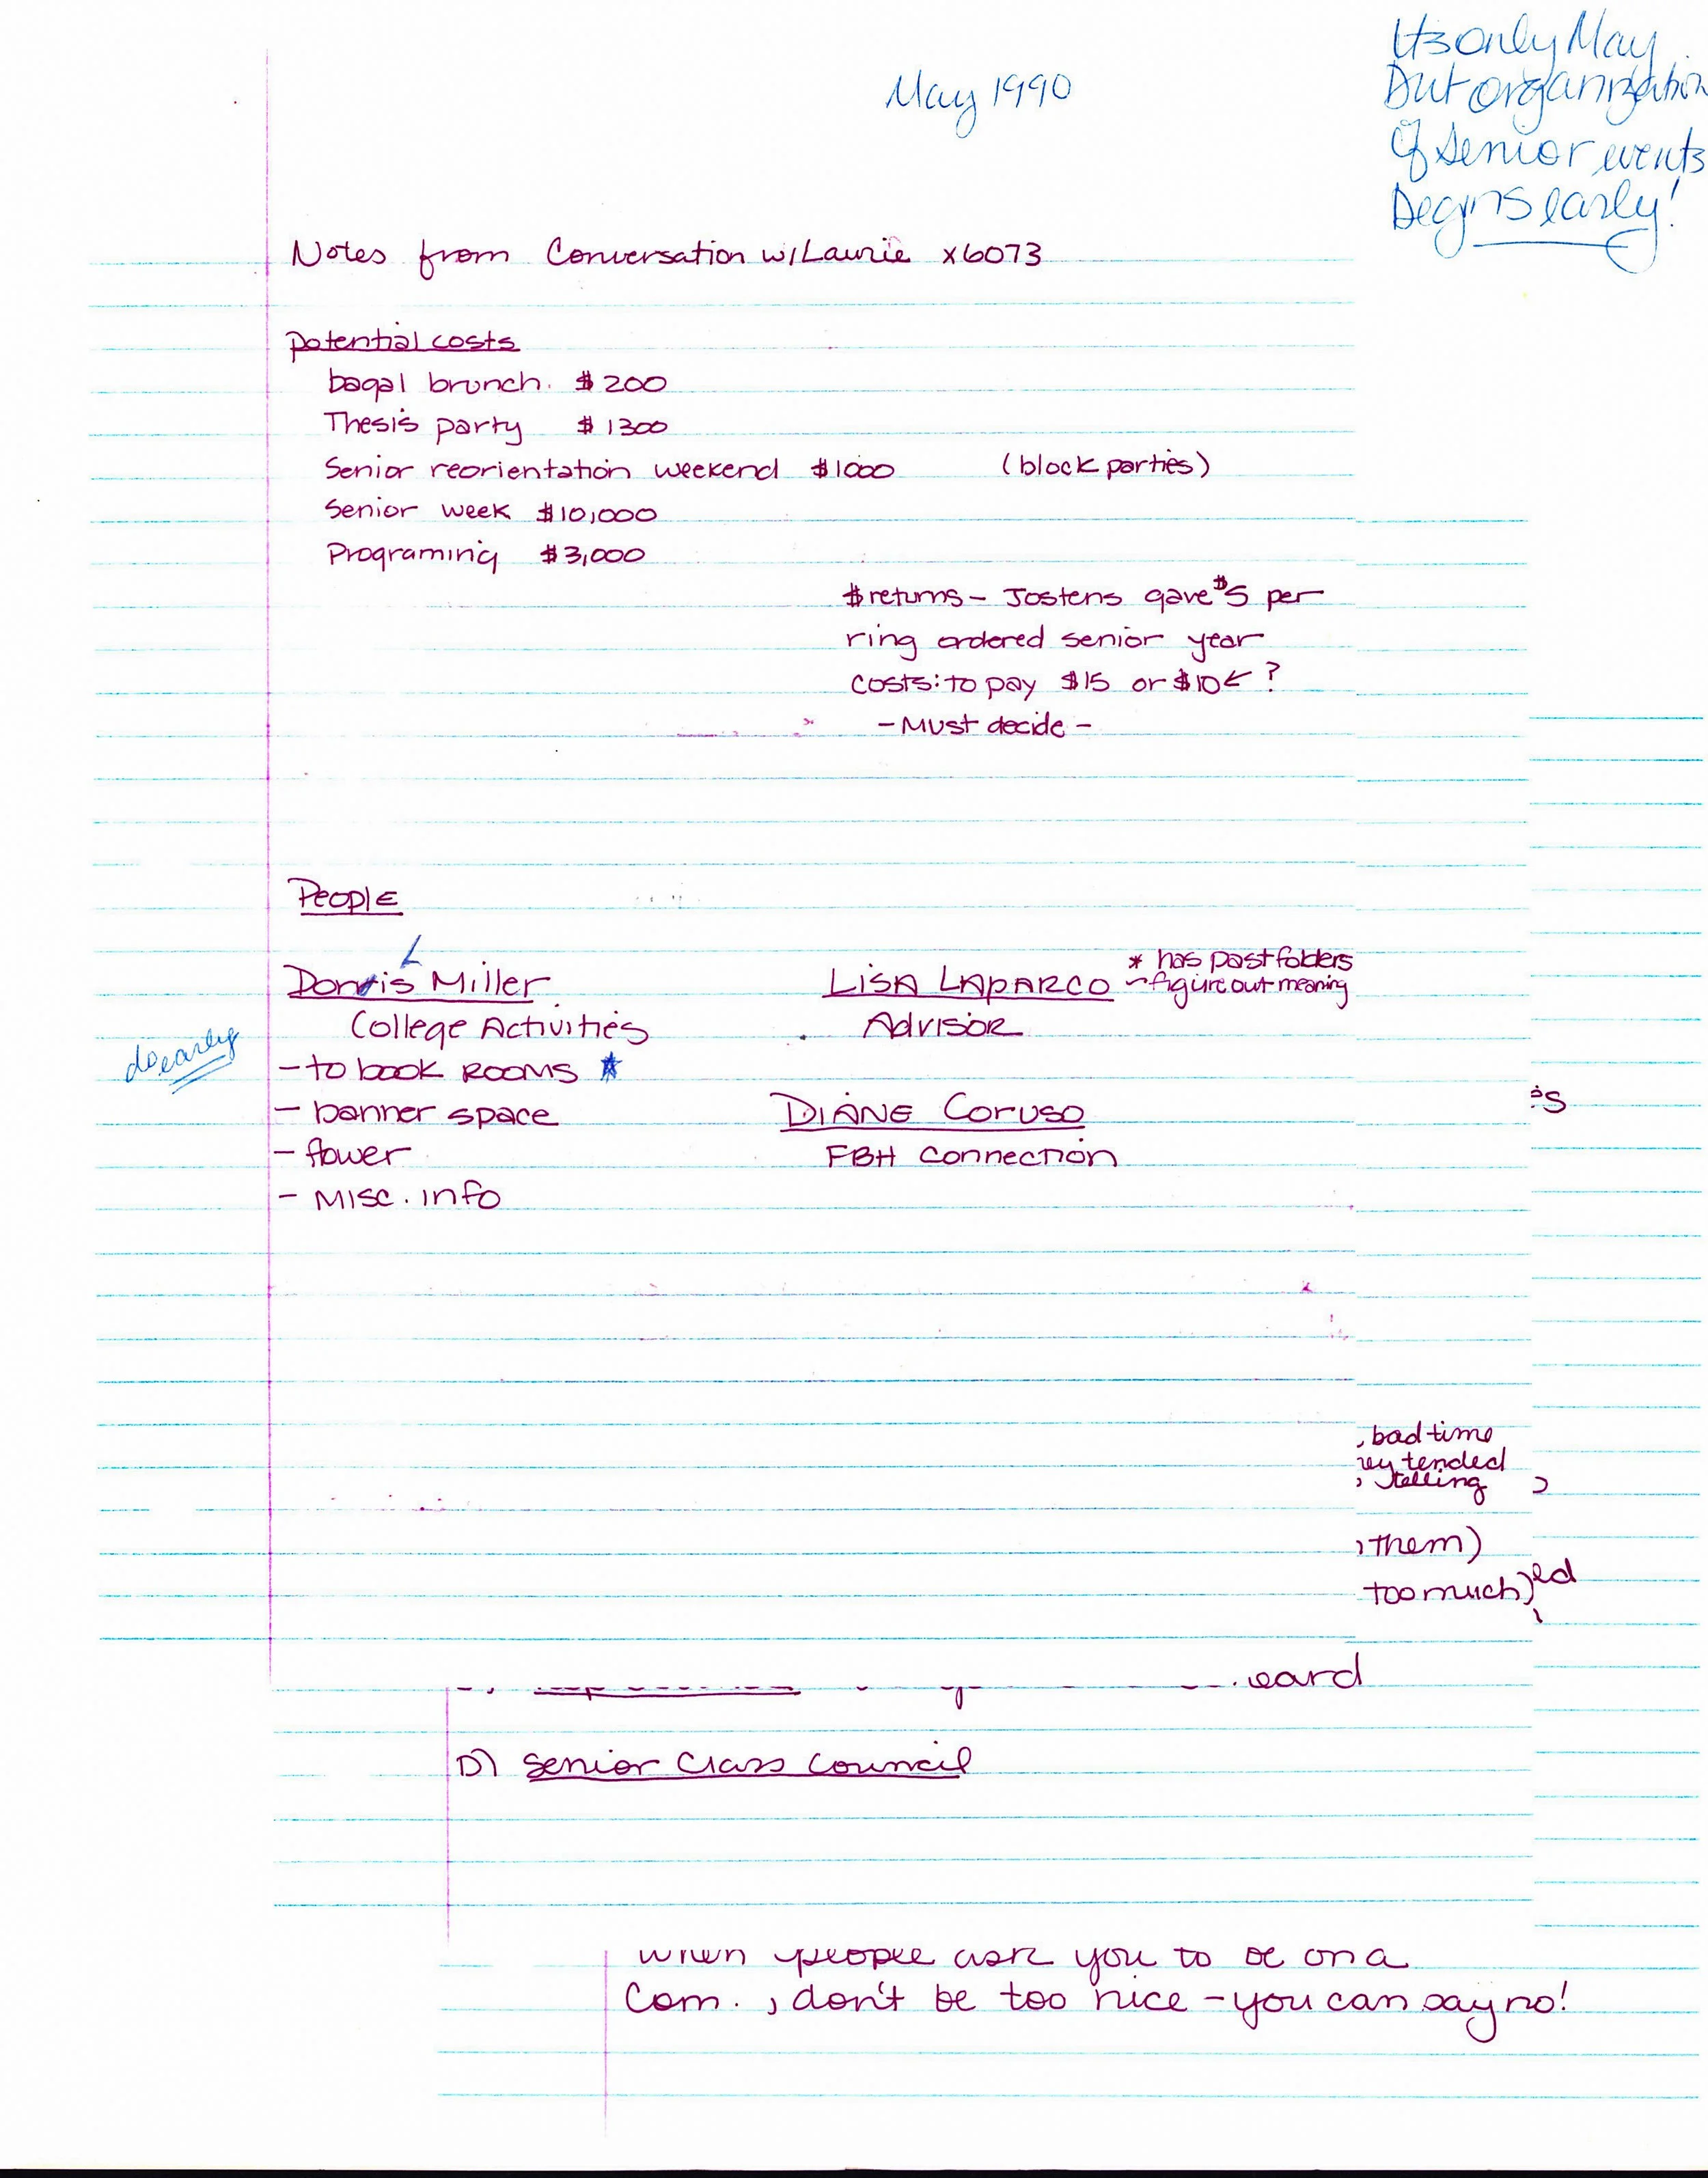 May 1990
Its only May
But organization
of Senior events
Begins early!
Notes from Conversation w/Laurie x6073
potential costs
bagal brunch. $200
Thesis party $1300
Senior reorientation weekend $1000 (block parties)
Senior week $10,000
Programing $3,000
$returns - Jostens gave $5 per
ring ordered senior year
costs: to pay $15 or $10 ← ?
- Must decide -
People
Miller
College Activities
- to book ROOMS ★
do early
- banner space
- flower
- MISC. info
LISA LAPARCO
* has past folders
- figure out meaning
Advisor
DIANE Coruso
FBH connection
, bad time
tended
telling
them)
too much)
D) Senior Class Council
when people ask you to be on a
Com., don't be too nice - you can say no!